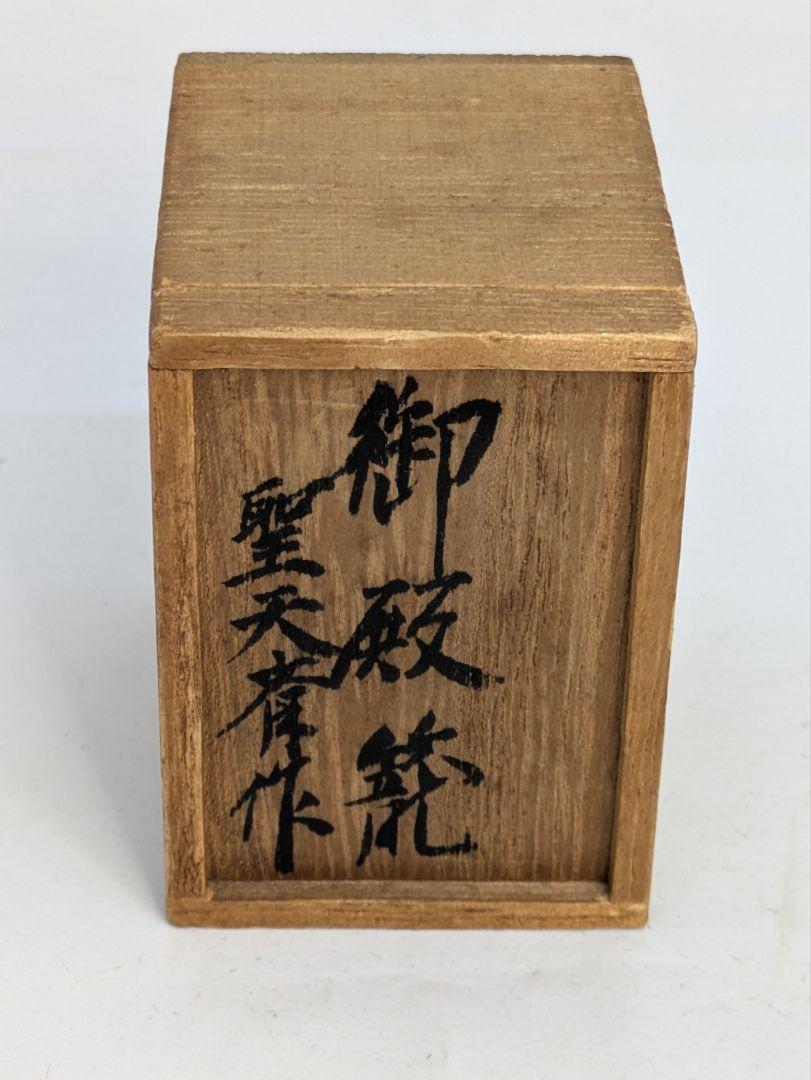 御殿籠
聖天斎作